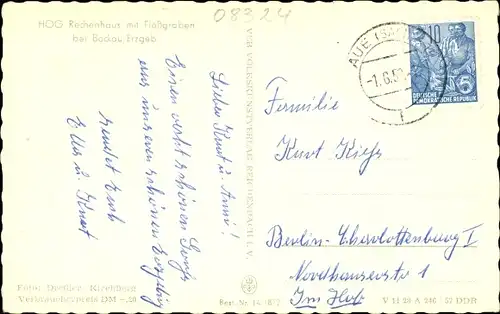 08324
HOG Rechenhaus mit Floßgraben
bei Bockau Erzgeb.
Liebe Kurt u. Anni!
Einen recht schönen Gruß
aus unseren schönen Erzgebirg
sendet Euch
Ella u. Knut
VEB VOLKSKUNSTVERLAG REICHENBACH I. V.
AUE (SACHS)
-1.6.5
f
10
DEUTSCHE
DEMOKRATISCHE REPUBLIK
5
Familie
Kurt
Berlin-Charlottenburg I
Nordhauserstr. 1
Im Hof
Verbraucherpreis DM -,20
Best. Nr. 14/872
V 11 28 A 240 57 DDR